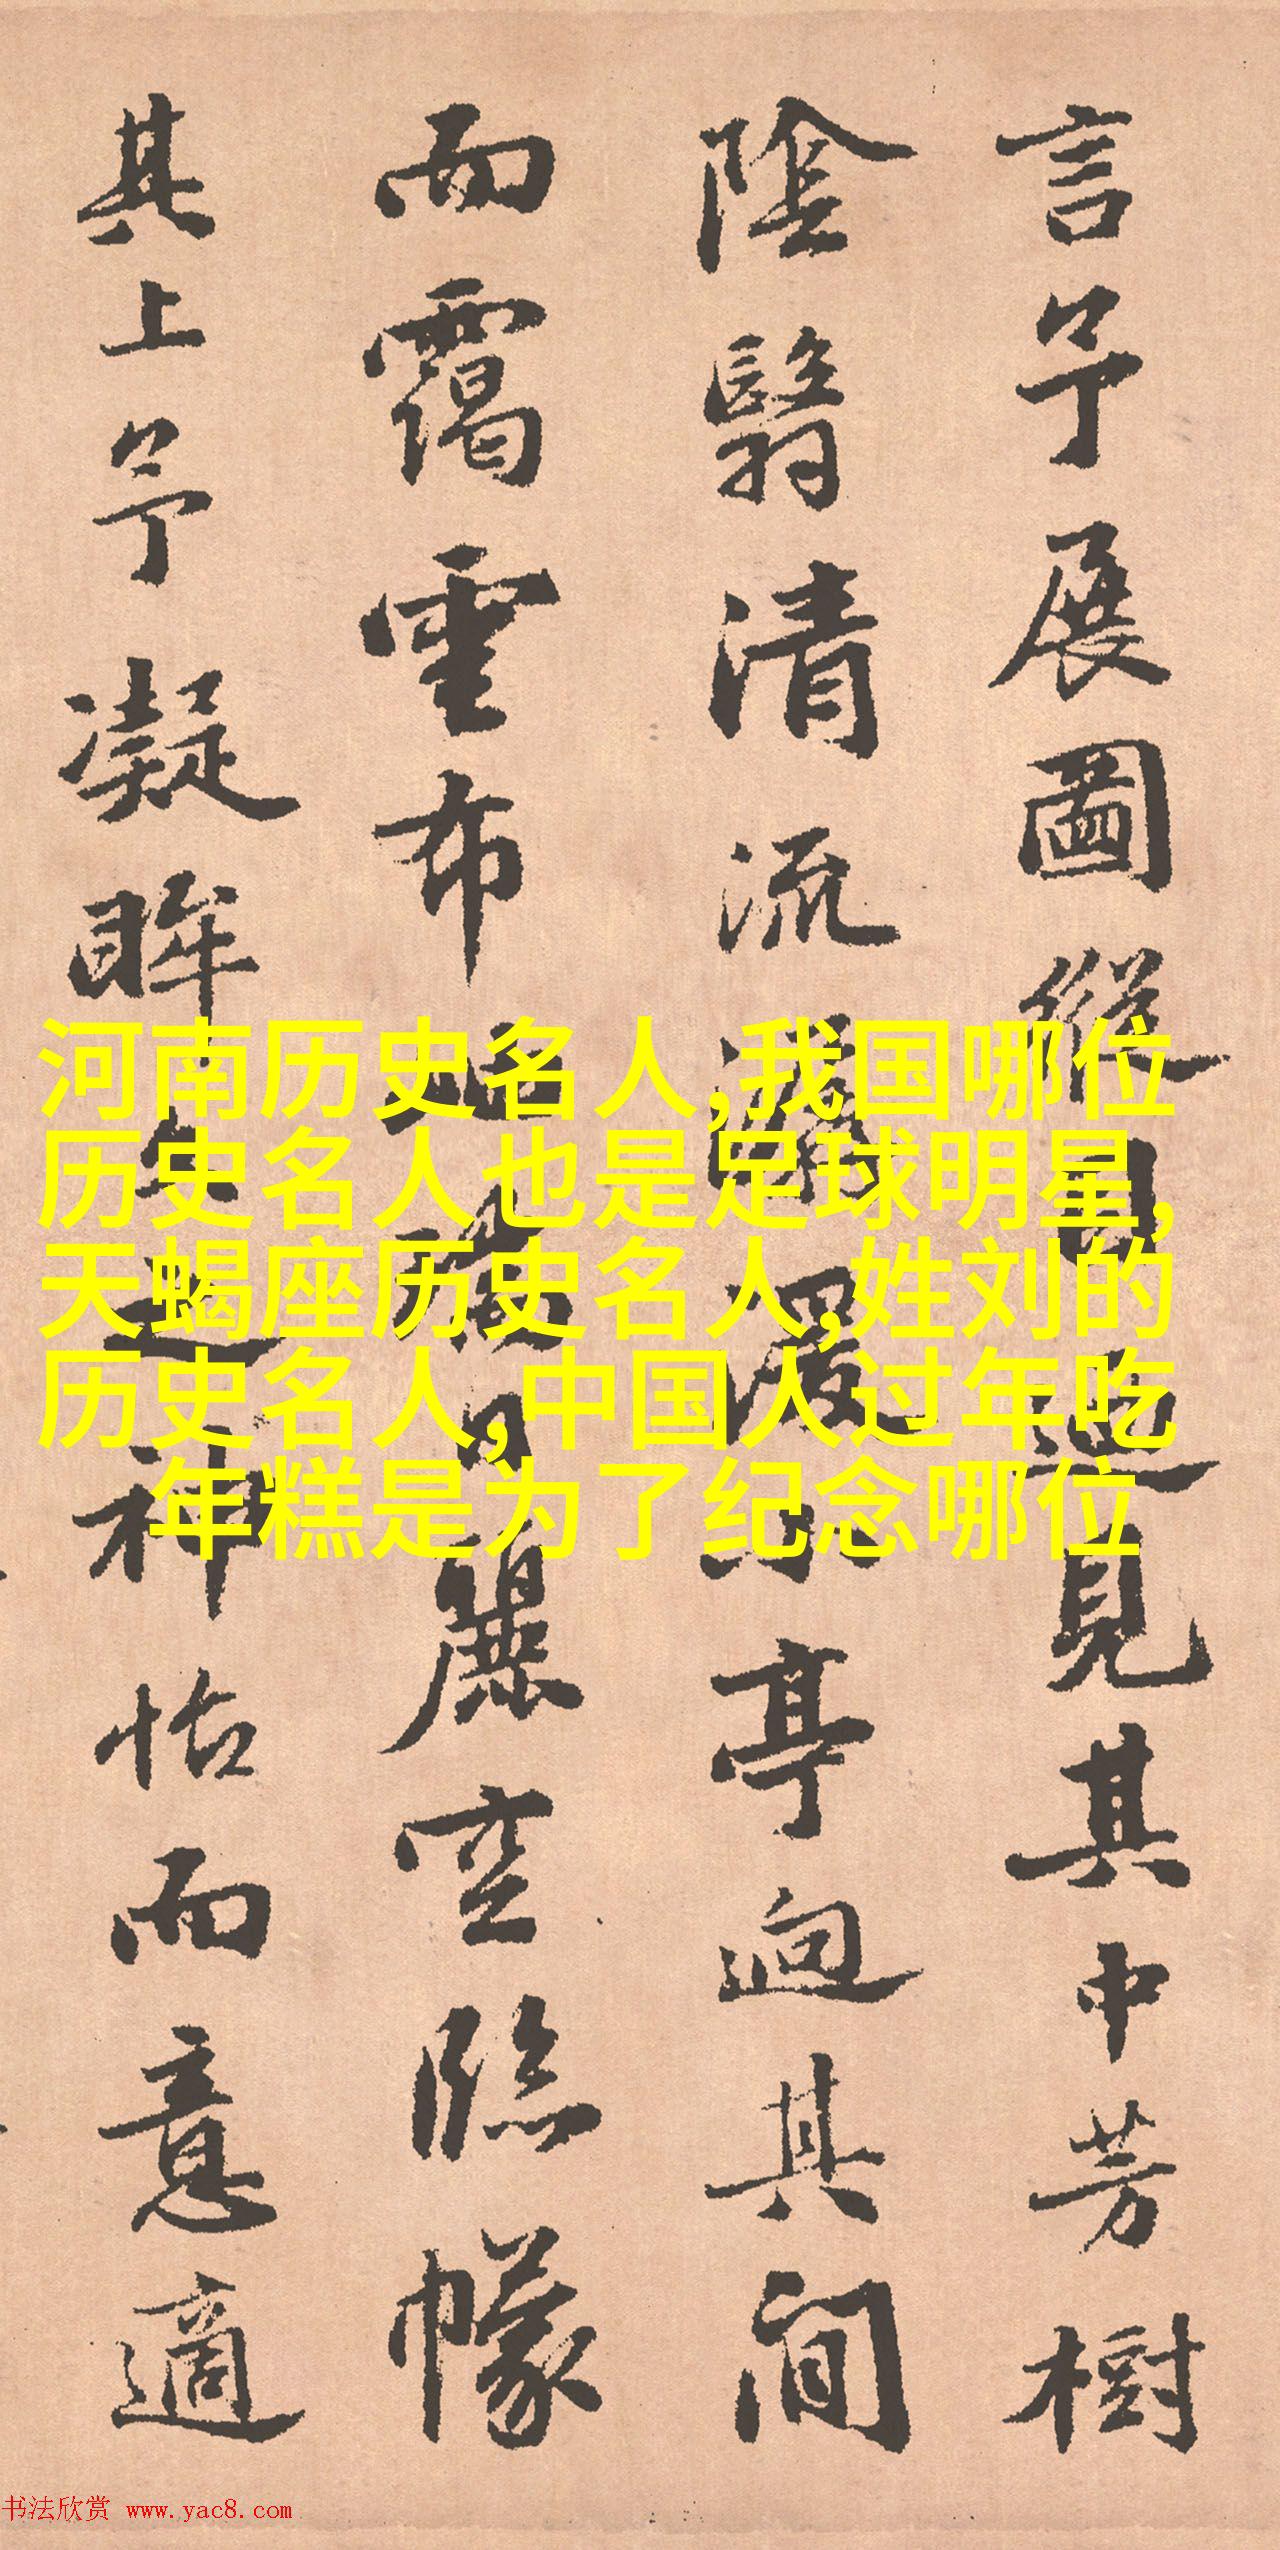 言予展圖縱目見其中芳樹
陰翳清流潺湲小亭迥其間
而靄雲布空臨幪
其上予凝眸久之神怡而意適
河南历史名人,我国哪位
历史名人也是足球明星,
天蝎座历史名人,姓刘的
历史名人,中国人过年吃
年糕是为了纪念哪位
书法欣赏 www.yac8.com